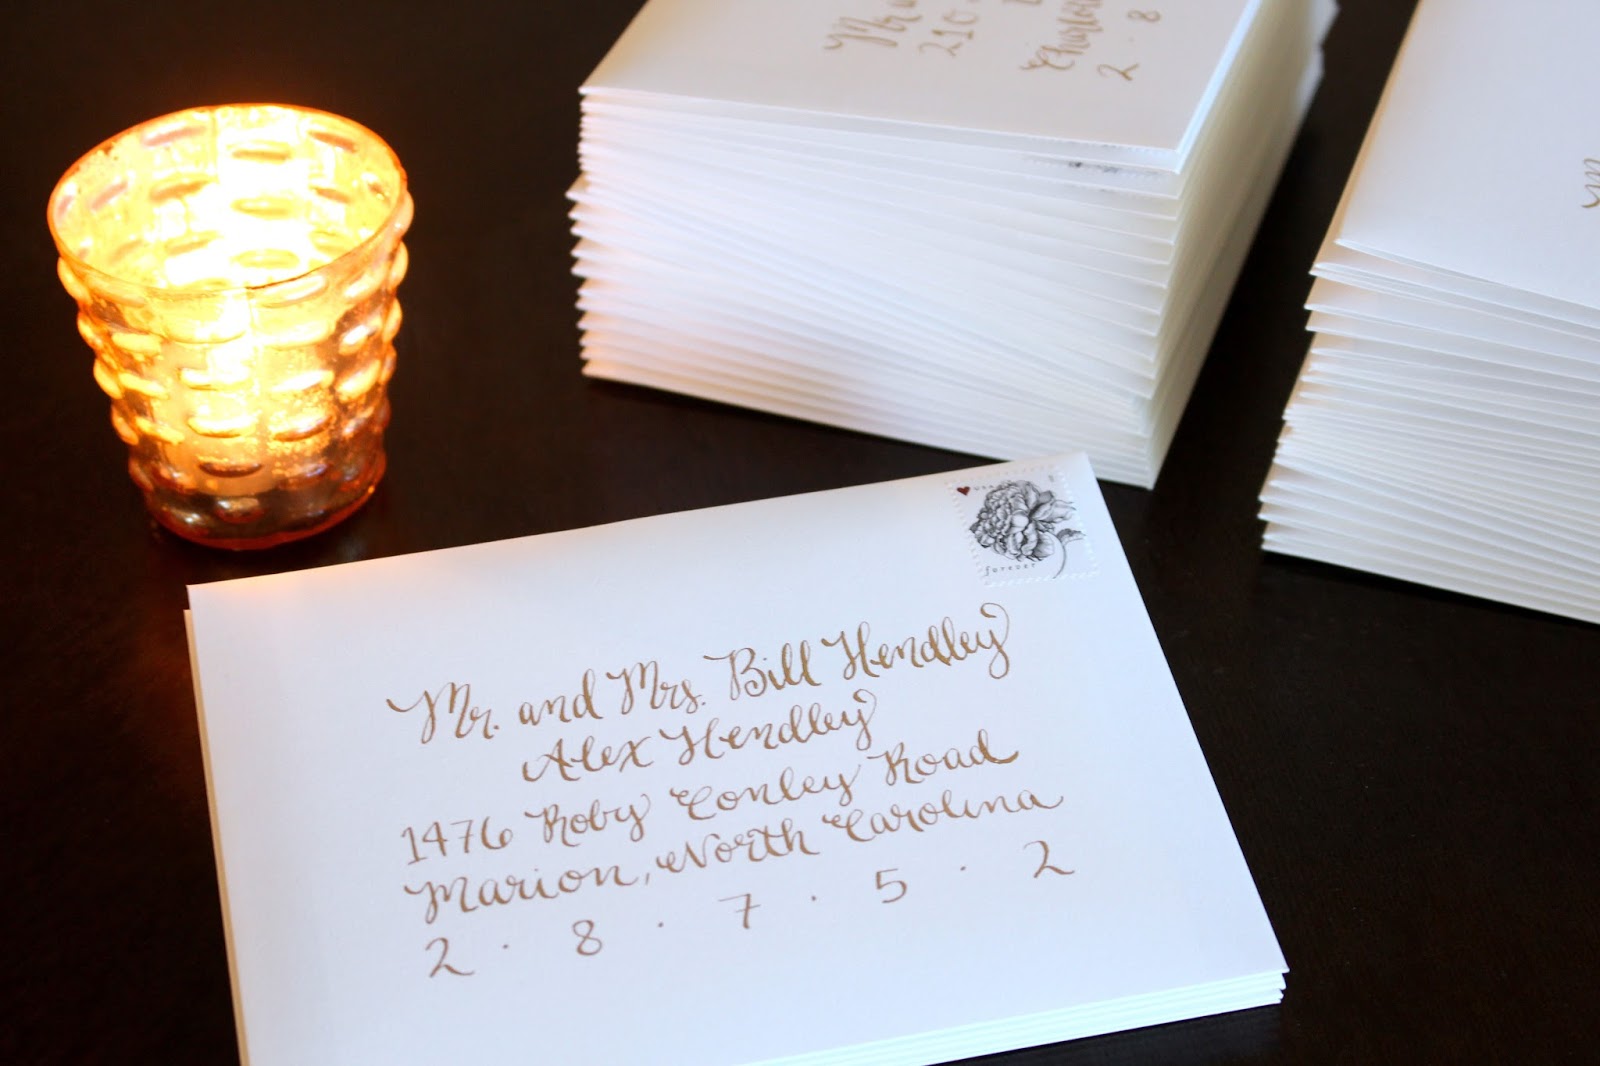 Mr
210
2 · 8
USA
forever
Mr. and Mrs. Bill Hendley
Alex Hendley
1476 Roby Conley Road
Marion, North Carolina
2 · 8 · 7 · 5 · 2